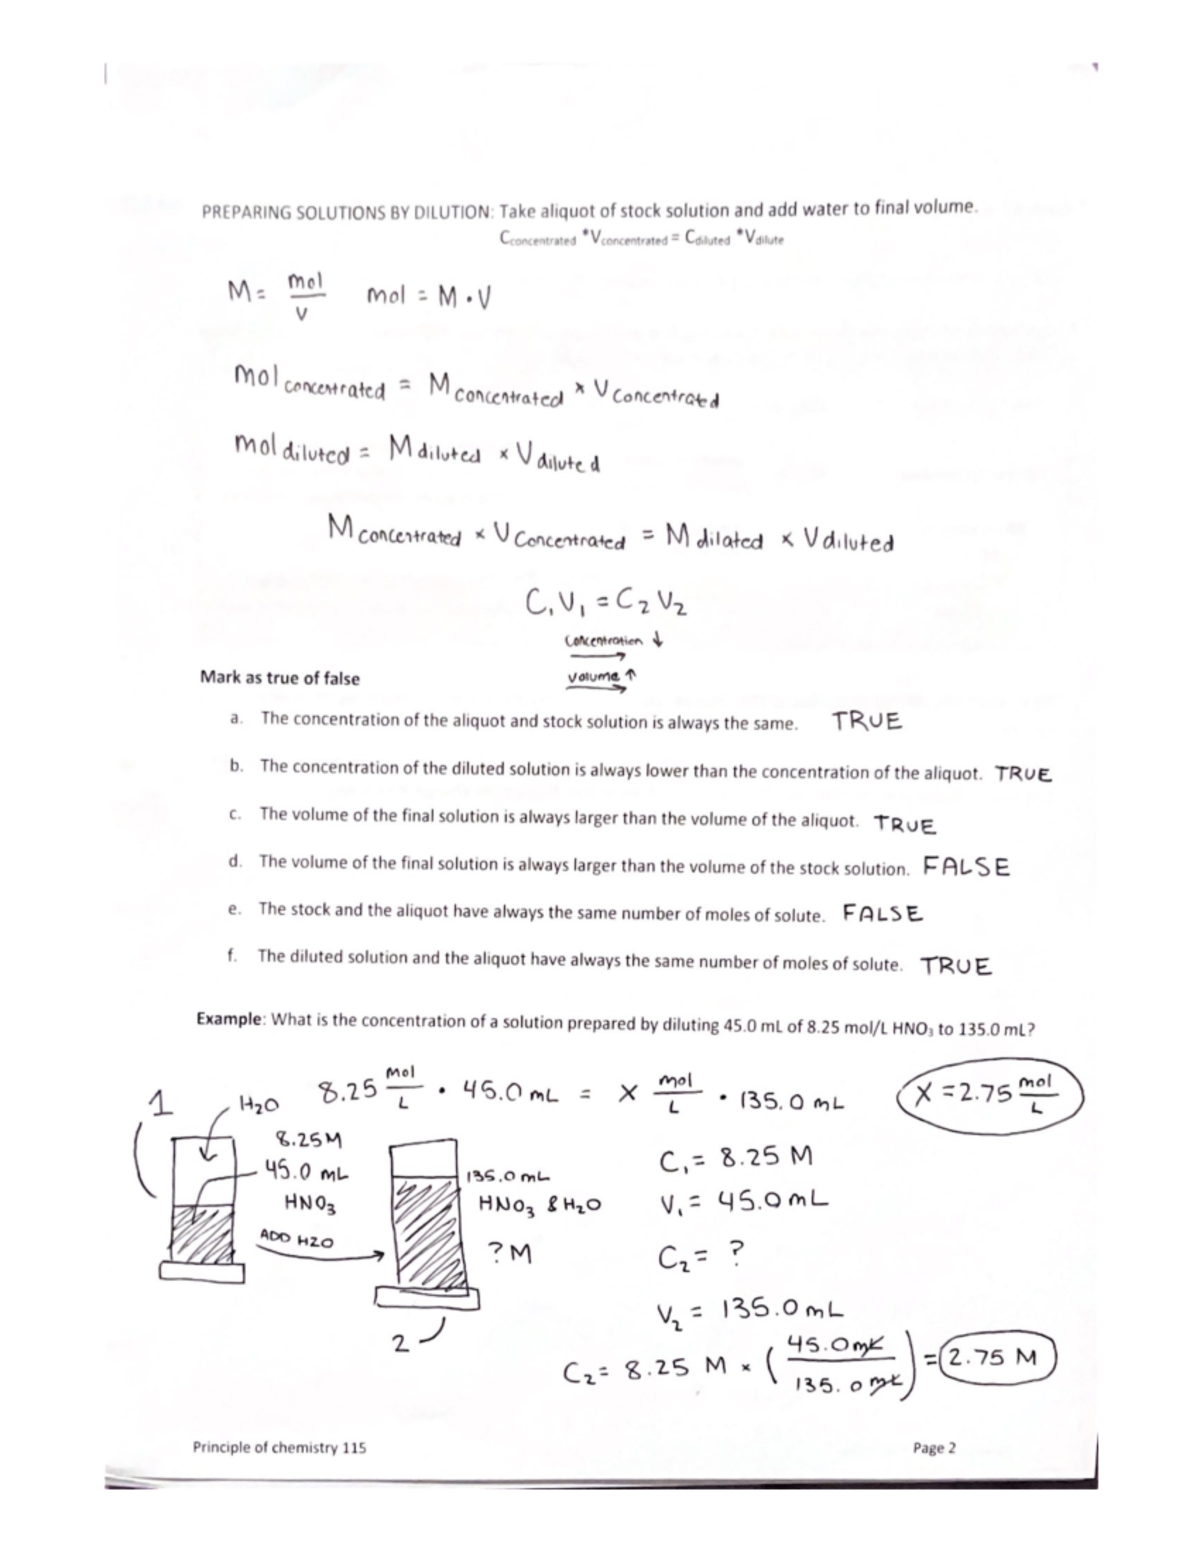 PREPARING SOLUTIONS BY DILUTION: Take aliquot of stock solution and add water to final volume.
Cconcentrated *Vconcentrated = Cdiluted *Vdilute
M = mol/V mol = M • V
mol concentrated = M concentrated × V concentrated
mol diluted = M diluted × V diluted
M concentrated × V concentrated = M dilated × V diluted
C₁V₁ = C₂V₂
Concentration ↓
Mark as true of false
volume ↑
a. The concentration of the aliquot and stock solution is always the same. TRUE
b. The concentration of the diluted solution is always lower than the concentration of the aliquot. TRUE
c. The volume of the final solution is always larger than the volume of the aliquot. TRUE
d. The volume of the final solution is always larger than the volume of the stock solution. FALSE
e. The stock and the aliquot have always the same number of moles of solute. FALSE
f. The diluted solution and the aliquot have always the same number of moles of solute. TRUE
Example: What is the concentration of a solution prepared by diluting 45.0 mL of 8.25 mol/L HNO₃ to 135.0 mL?
8.25 mol/L • 45.0 mL = X mol/L • 135.0 mL X = 2.75 mol/L
1
H₂O
8.25M
45.0 mL
HNO₃
ADD H2O
135.0 mL
HNO₃ & H₂O
? M
2
C₁ = 8.25 M
V₁ = 45.0 mL
C₂ = ?
V₂ = 135.0 mL
C₂ = 8.25 M × (45.0 mL/135.0 mL) = 2.75 M
Principle of chemistry 115
Page 2